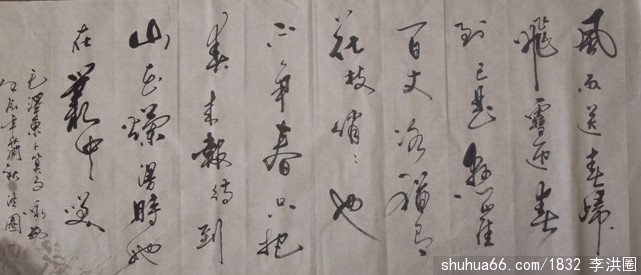 風雨送春歸
飛雪迎春
到已是懸崖
百丈冰猶有
花枝俏〻也
不争春只把
春来報待到
山花爛漫時她
在叢中笑
毛澤東卜算子詠梅
辰年蘭秋洪圈
shuhua66.com/1832 李洪圈